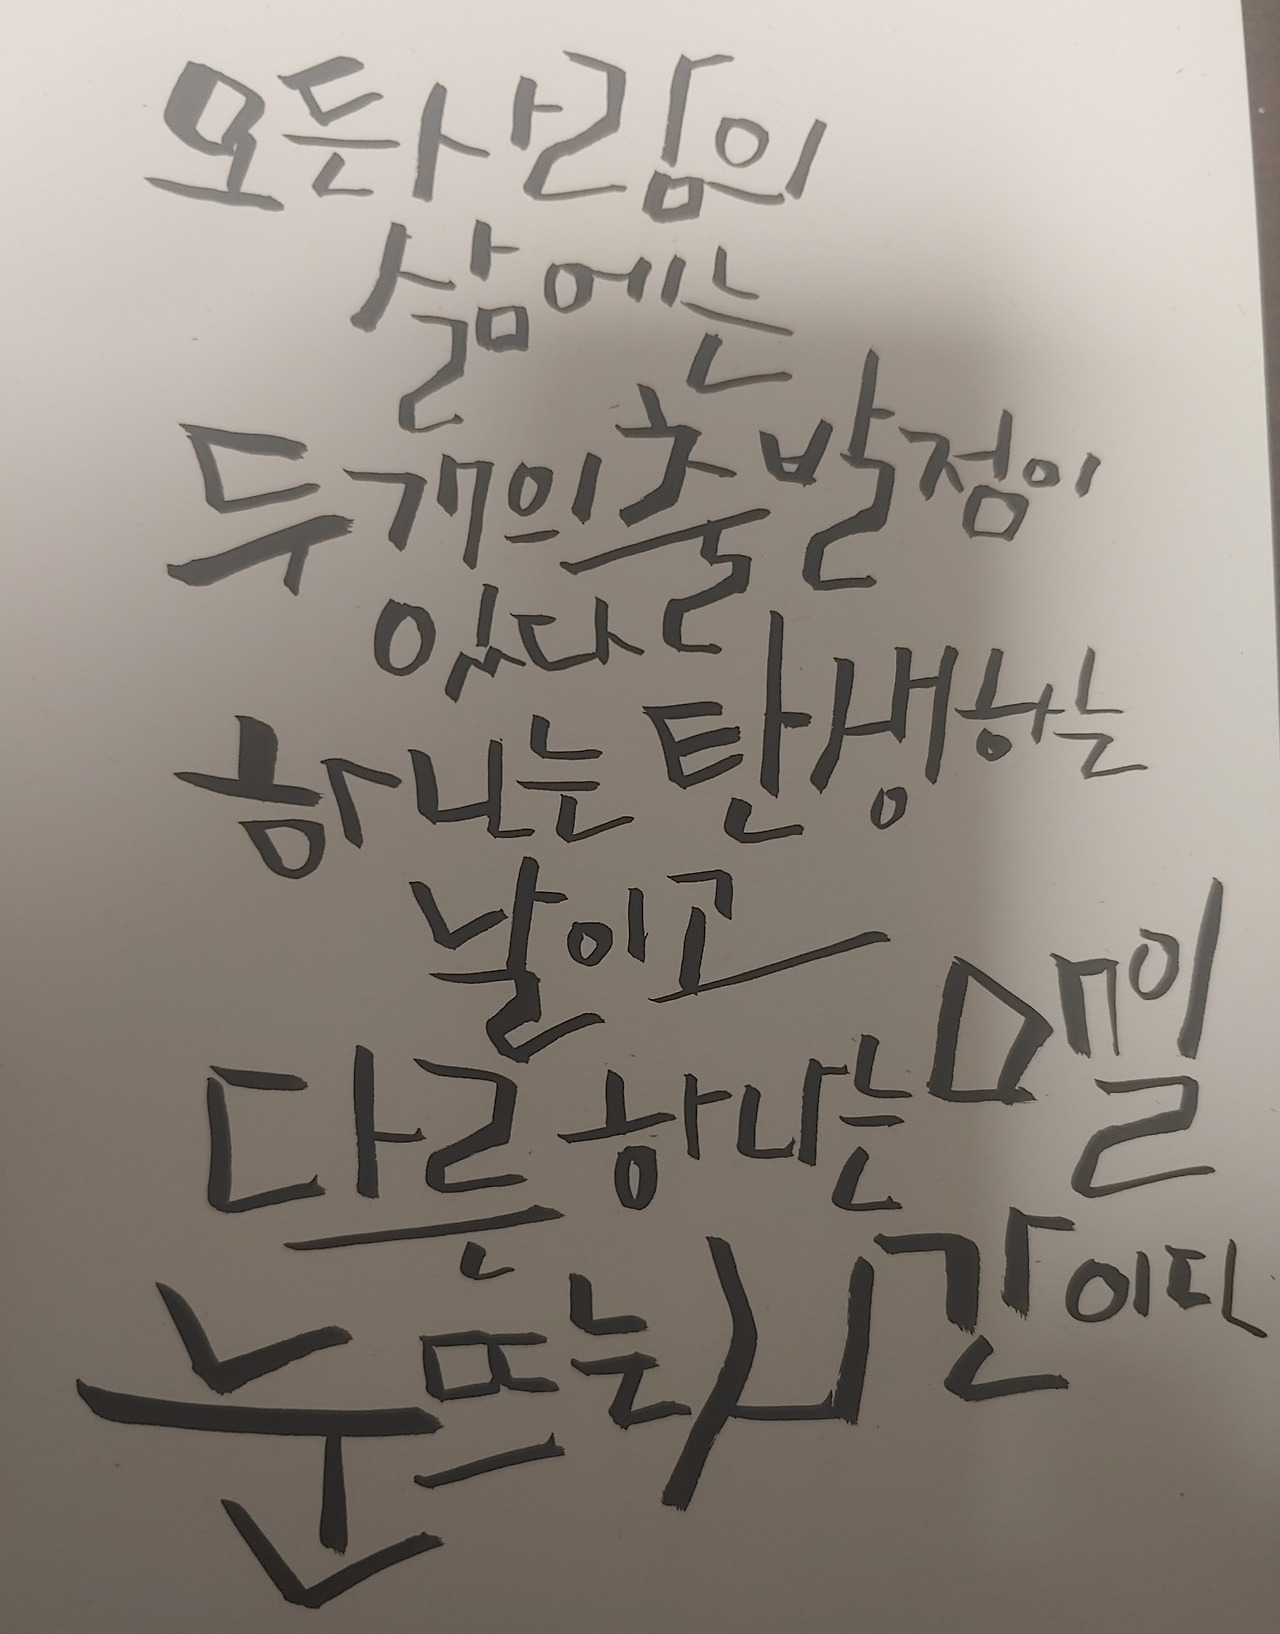 모든 사람의
삶에는
두 개의 출발점이
있다
하나는 탄생하는
날이고
다른 하나는 매일
눈뜨는 시간이다